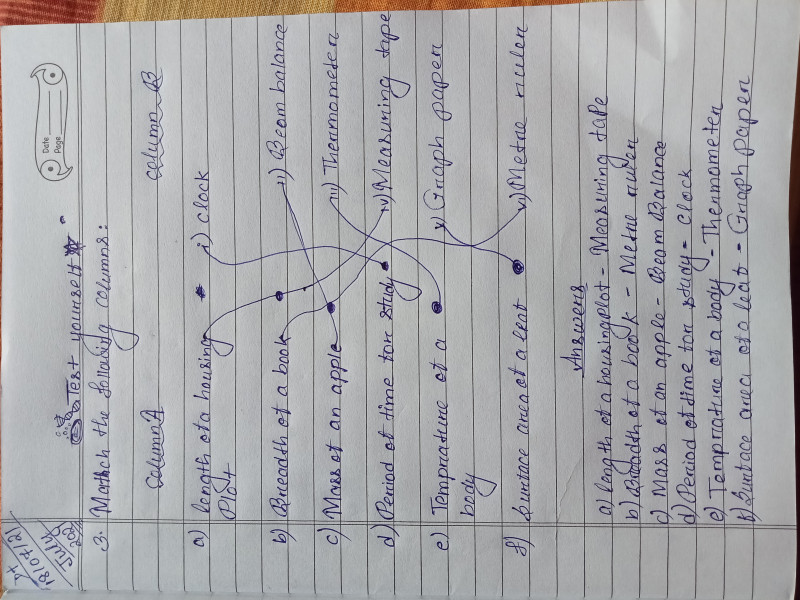 Date
Page
18/07/21
July
Test yourself
3. Match the following columns:
Column A column B
a) length of a housing plot i) clock
b) Breadth of a book ii) Beam balance
c) Mass of an apple iii) Thermometer
d) Period of time for study iv) Measuring tape
e) Temprature of a body v) Graph paper
f) Surface area of a leaf vi) Metre ruler
Answers
a) length of a housingplot - Measuring tape
b) Breadth of a book - Metre ruler
c) Mass of an apple - Beam Balance
d) Period of time for study - Clock
e) Temprature of a body - Thermometer
f) Surface area of a leaf - Graph paper